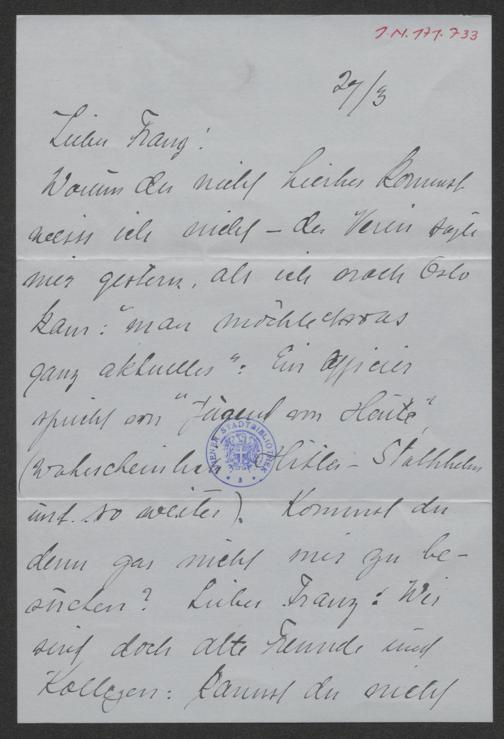 J.N. 171.733
27/3
Lieber Franz!
Warum du nicht hierher kommst
weiss ich nicht – der Verein sagte
mir gestern, als ich nach Oslo
kam: "man möchte etwas
ganz aktuelles": Ein Officier
spricht von "Jugend von Heute",
(wahrscheinlich Hitler – Stahlhelm
WIENER STADTBIBLIOTHEK
und so weiter). Kommst du
denn gar nicht mir zu be-
suchen? Lieber Franz: Wir
sind doch alte Freunde und
Kollegen: kannst du nicht